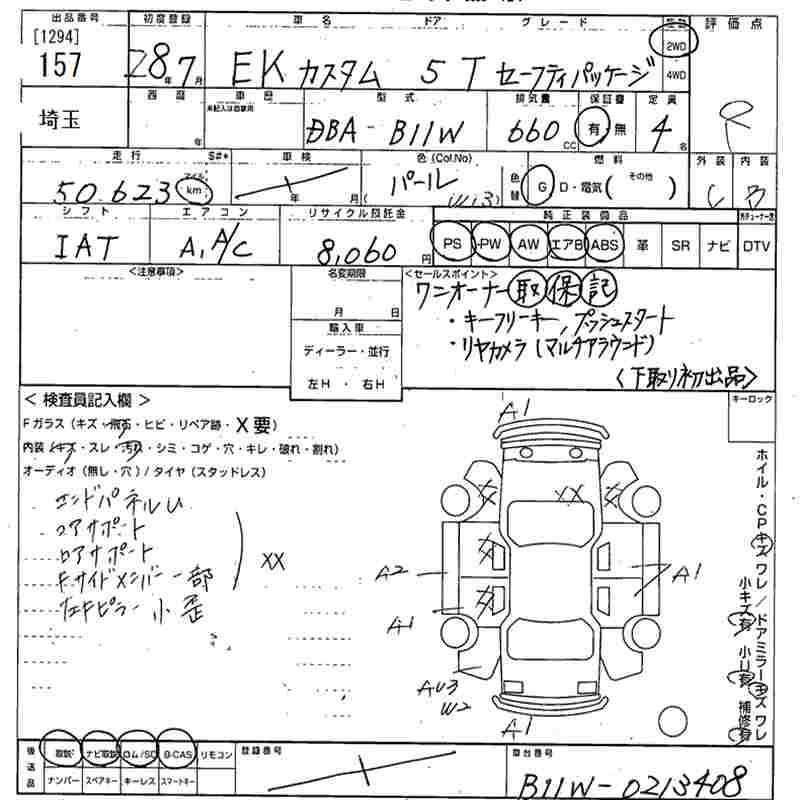 出品番号 初度登録 車名 ドア グレード 駆動 評価点
[1294]
157 28年 7月 EK カスタム 5 T セーフティパッケージ 2WD 4WD
西暦 車歴 型式 排気量 保証書 定員 R
埼玉 年 未記入は自家用 DBA-B11W 660 CC 有・無 4名
走行 S#* 車検 色(Col.No) 燃料 外装 内装
50.623 マイル km 年 月 パール (W13) 色替 G D・電気( その他 ) C B
シフト エアコン リサイクル預託金 純正装備品
IAT A,A/C 8,060円 PS PW AW エアB ABS 革 SR ナビ DTV
<注意事項> 名変期限 <セールスポイント>
月 日 ワンオーナー 取 保 記
輸入車 ・キーフリーキー, プッシュスタート
ディーラー・並行 ・リヤカメラ(マルチアラウンド)
左H ・ 右H <下取り初出品>
< 検査員記入欄 > キーロック
Fガラス(キズ・飛石・ヒビ・リペア跡・X要)
内装(キズ・スレ・汚れ・シミ・コゲ・穴・キレ・破れ・割れ)
オーディオ(無し・穴)/タイヤ(スタッドレス)
エンドパネルU
コアサポート
ロアサポート XX
FサイドメンバーI部
小歪
A1
XX
A2 A1
A1
AU3
W2
A1
ホイル・CPキズ ワレ/ドアミラーキズ ワレ
小キズ有 小U有 補修有
後送品 取説 ナビ取説 ロム/SD B-CAS リモコン 登録番号 車台番号
ナンバー スペアキー キーレス スマートキー B11W-0213408